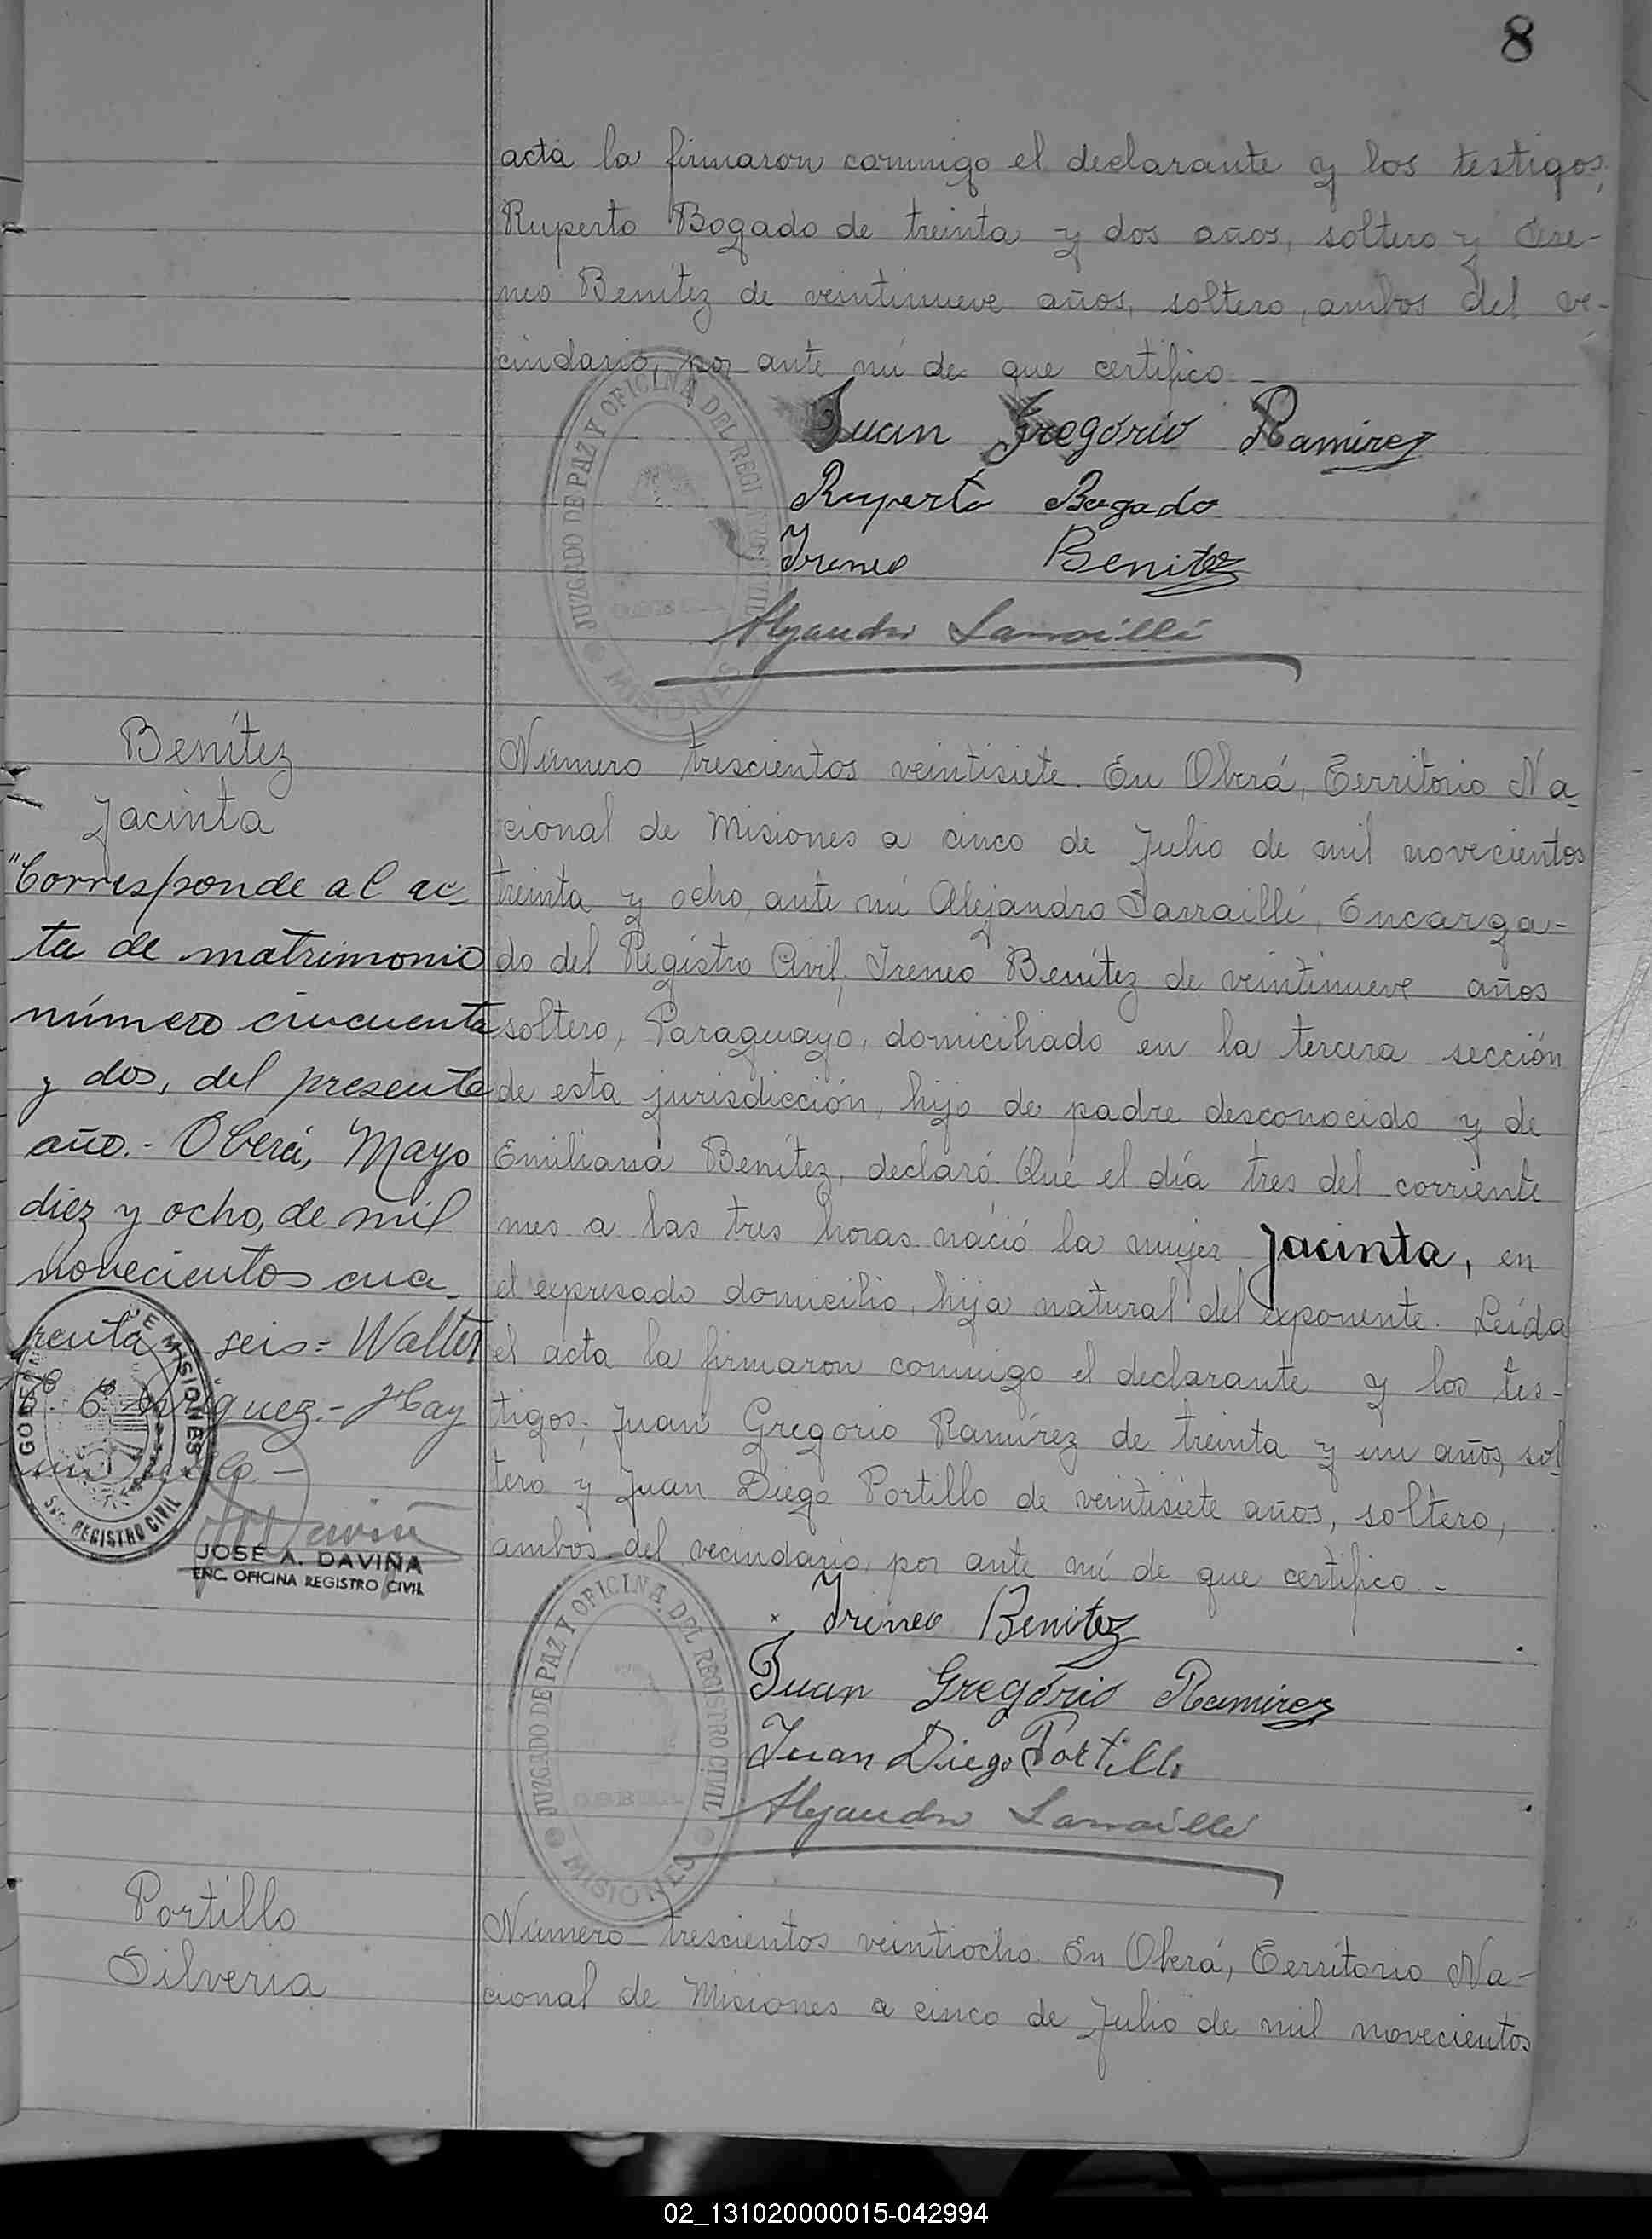 8
acta la firmaron conmigo el declarante y los testigos,
Ruperto Bogado de treinta y dos años, soltero y Ire-
neo Benítez de veintinueve años, soltero, ambos del ve-
cindario, por ante mí de que certifico.-
Juan Gregório Ramirez
Ruperto Bogado
Ireneo Benitez
Alejandro Larraillé
JUZGADO DE PAZ Y OFICINA DEL REGI CIVIL
MISIONES
Benítez
Jacinta
"Corresponde al ac-
ta de matrimonio
número cincuenta
y dos, del presente
año.- Oberá, Mayo
diez y ocho, de mil
novecientos cua-
renta seis= Walter
Hay
un sello.-
GOB DE MISIONES
Sec. REGISTRO CIVIL
JOSÉ A. DAVIÑA
ENC. OFICINA REGISTRO CIVIL
Número trescientos veintisiete. En Oberá, Territorio Na-
cional de Misiones a cinco de Julio de mil novecientos
treinta y ocho, ante mí Alejandro Larraillé, Encarga-
do del Registro Civil, Ireneo Benítez de veintinueve años
soltero, Paraguayo, domiciliado en la tercera sección
de esta jurisdicción, hijo de padre desconocido y de
Emiliana Benítez, declaró: Que el día tres del corriente
mes a las tres horas nació la mujer Jacinta, en
el expresado domicilio, hija natural del exponente. Leída
el acta la firmaron conmigo el declarante y los tes-
tigos; Juan Gregorio Ramírez de treinta y un años, sol-
tero y Juan Diego Portillo de veintisiete años, soltero,
ambos del vecindario, por ante mí de que certifico.-
Ireneo Benitez
Juan Gregório Ramirez
Juan Diego Portillo
Alejandro Larraillé
JUZGADO DE PAZ Y OFICINA DEL REGISTRO CIVIL
OBERA
MISIONES
Portillo
Silveria
Número trescientos veintiocho. En Oberá, Territorio Na-
cional de Misiones a cinco de Julio de mil novecientos
02_131020000015-042994